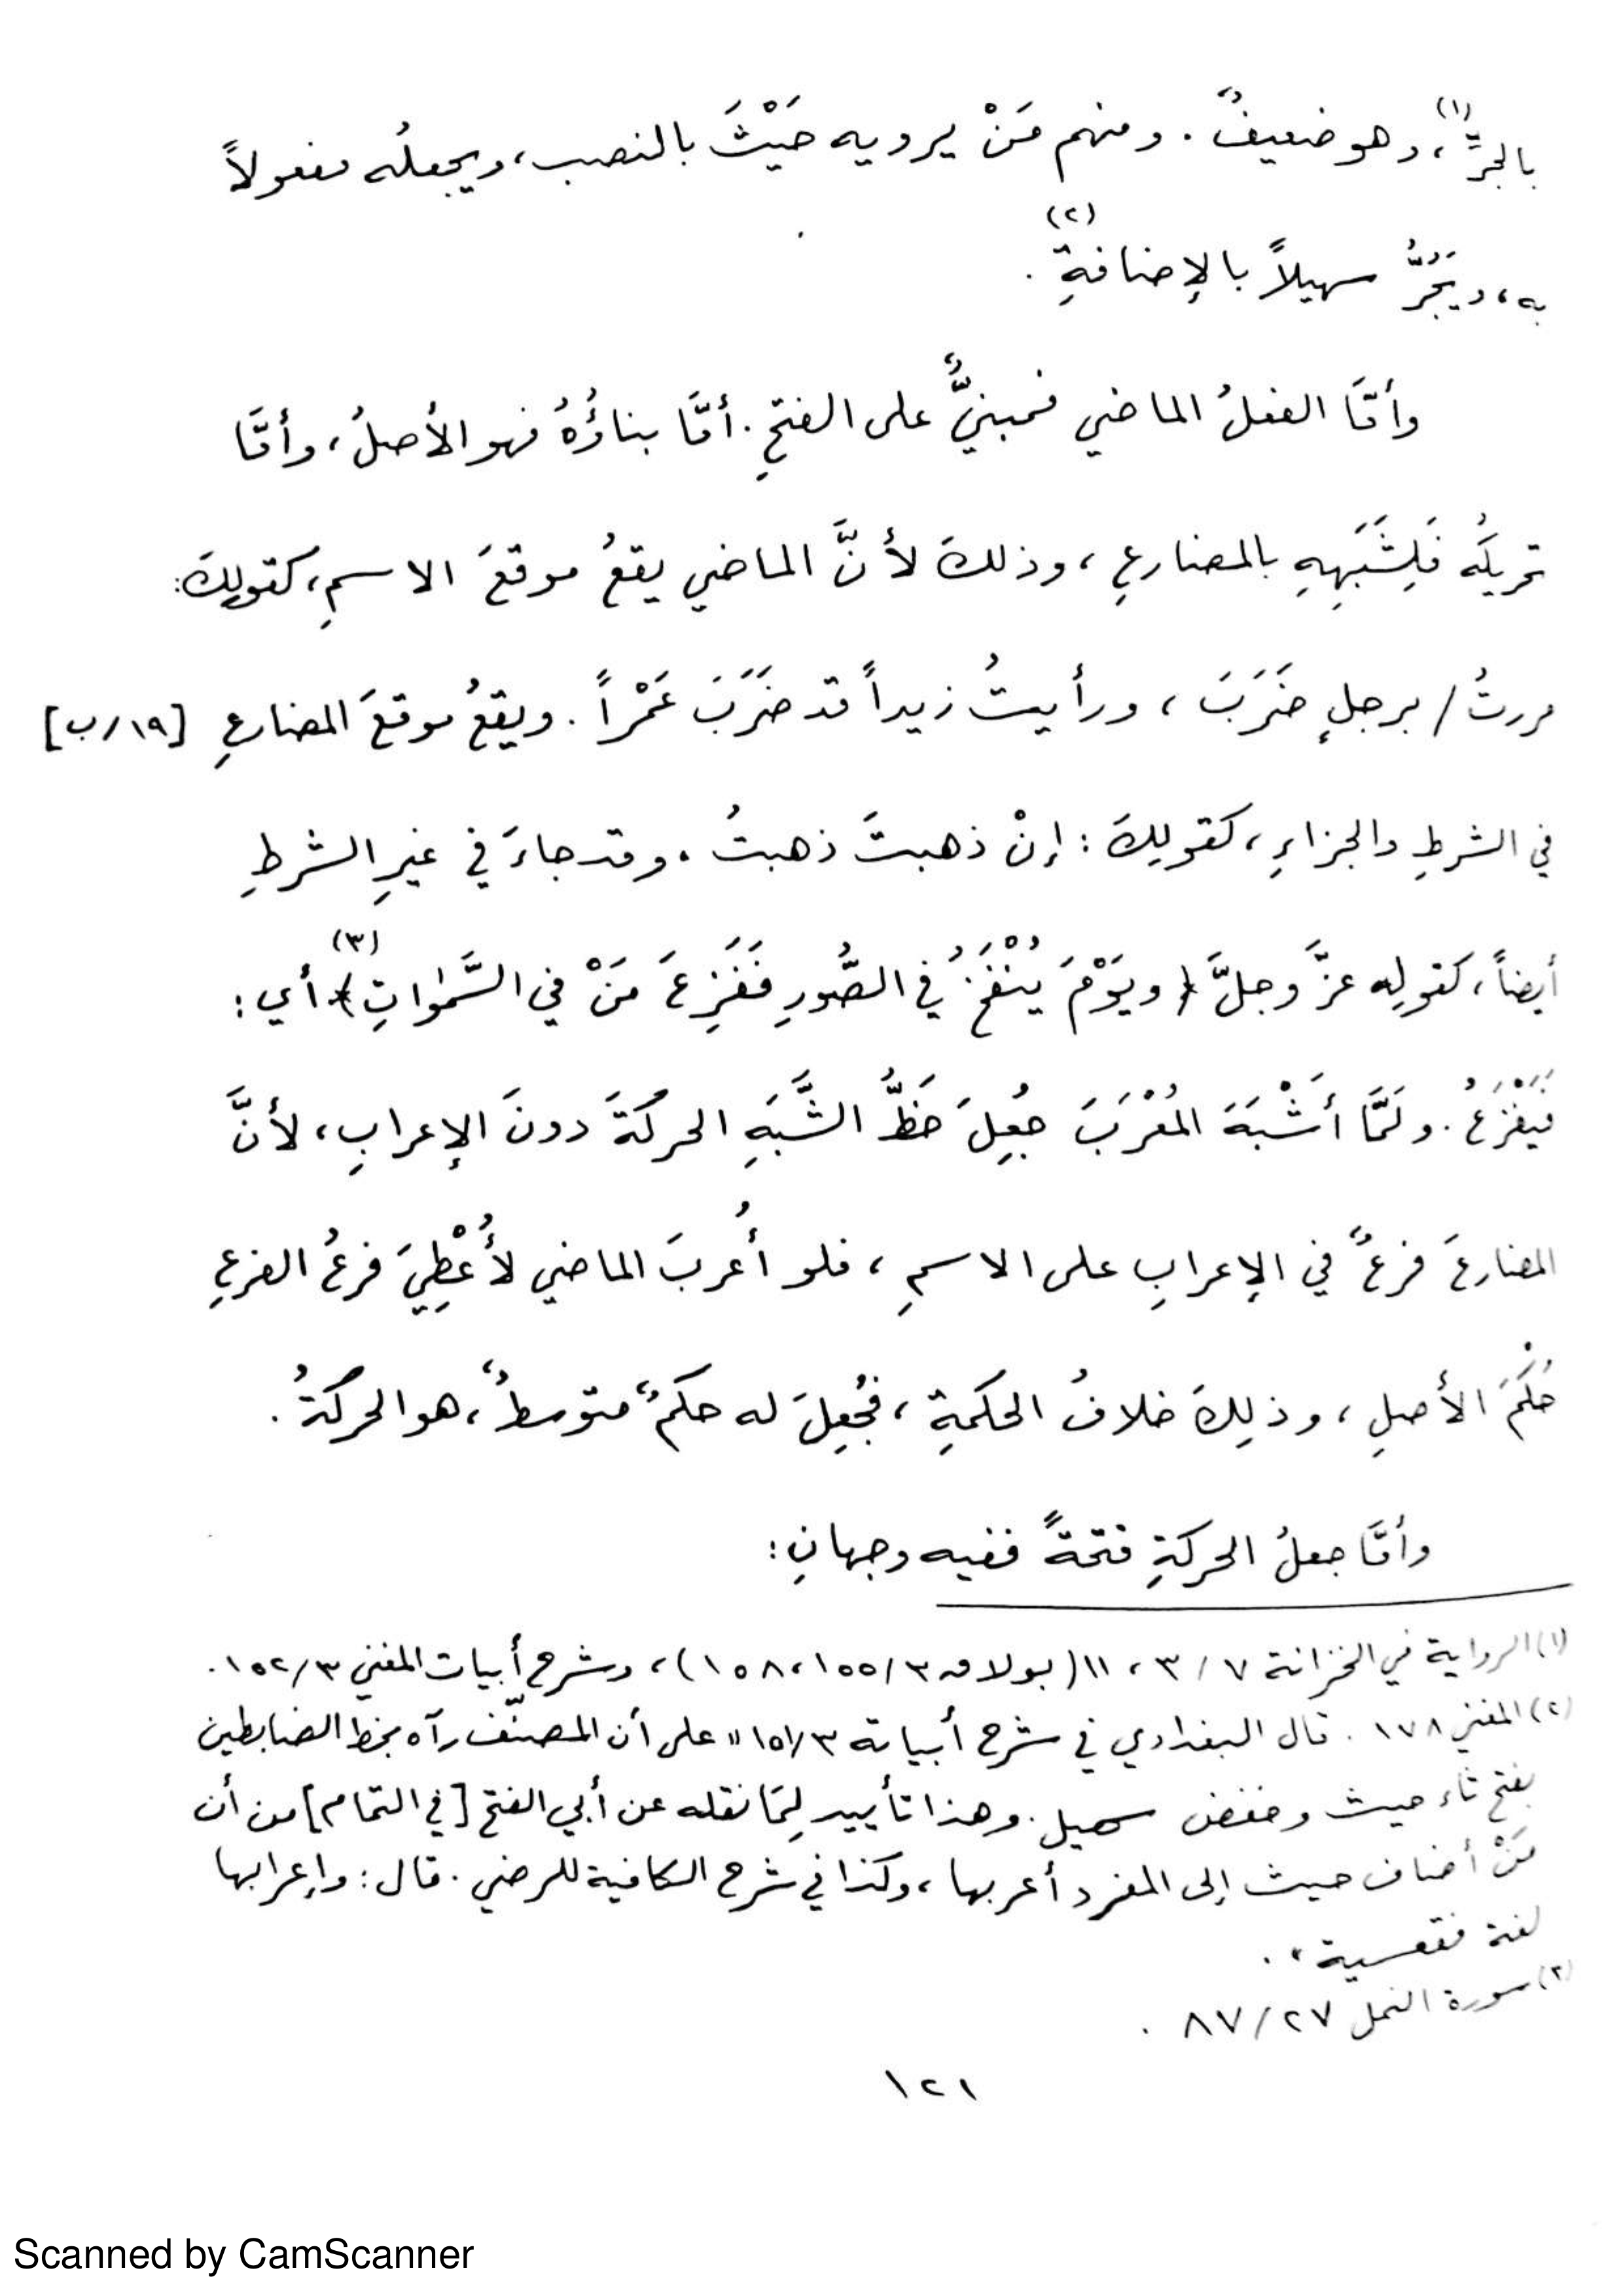 بالجرِّ(١)، وهو ضعيفٌ. ومنهم مَنْ يرويه حَيْثَ بالنصب، ويجعلُه مفعولاً
به، ويَجُرُّ سهيلاً بالإضافةِ(٢).
وأمَّا الفعلُ الماضي فمبنيٌّ على الفتحِ. أمَّا بناؤُهُ فهو الأصلُ، وأمَّا
تحريكُه فَلِشَبَهِهِ بالمضارعِ، وذلكَ لأنَّ الماضي يقعُ موقعَ الاسمِ، كقولِكَ:
مررتُ / برجلٍ ضَرَبَ، ورأيتُ زيداً قد ضَرَبَ عَمْراً. ويقعُ موقعَ المضارعِ [١٩/ب]
في الشرطِ والجزاءِ، كقولِكَ: إنْ ذهبتَ ذهبتُ. وقد جاءَ في غيرِ الشرطِ
أيضاً، كقولِه عزَّ وجلَّ ﴿ويَوْمَ يُنْفَخُ في الصُّورِ فَفَزِعَ مَنْ في السَّمٰواتِ﴾(٣) أي:
فَيَفْزَعُ. ولَمَّا أَشْبَهَ المُعْرَبَ جُعِلَ حَظُّ الشَّبَهِ الحركةَ دونَ الإعرابِ، لأنَّ
المضارعَ فرعٌ في الإعرابِ على الاسمِ، فلو أُعربَ الماضي لأُعْطِيَ فرعُ الفرعِ
حُكْمَ الأصلِ، وذلِكَ خلافُ الحكمةِ، فجُعِلَ له حكمٌ متوسطٌ، هو الحركةُ.
وأمَّا جعلُ الحركةِ فتحةً ففيه وجهانِ:
(١) الرواية في الخزانة ٧/٣، ١١ (بولاق ٣/١٥٥، ١٥٨)، وشرح أبيات المغني ٣/١٥٢.
(٢) المغني ١٧٨. قال البغدادي في شرح أبياته ٣/١٥١ "على أن المصنّف رآه بخط الضابطين
بفتح ثاء حيث وخفض سهيل. وهذا تأييد لِمَا نقله عن أبي الفتح [في التمام] من أن
مَنْ أضاف حيث إلى المفرد أعربها، وكذا في شرح الكافية للرضي. قال: وإعرابها
لغة فقعسية".
(٣) سورة النمل ٢٧/٨٧.
١٢١
Scanned by CamScanner